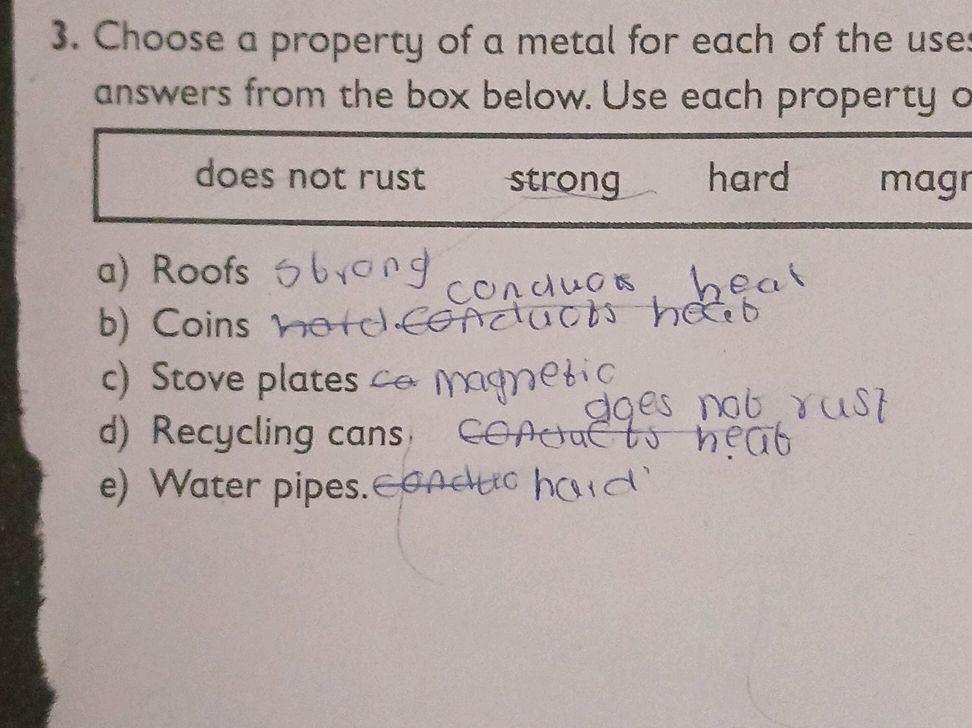 3. Choose a property of a metal for each of the uses
answers from the box below. Use each property o
does not rust strong hard magn
a) Roofs strong
conducts heat
b) Coins hard. conducts heat
c) Stove plates co magnetic
does not rust
d) Recycling cans conducts heat
e) Water pipes. conduc hard